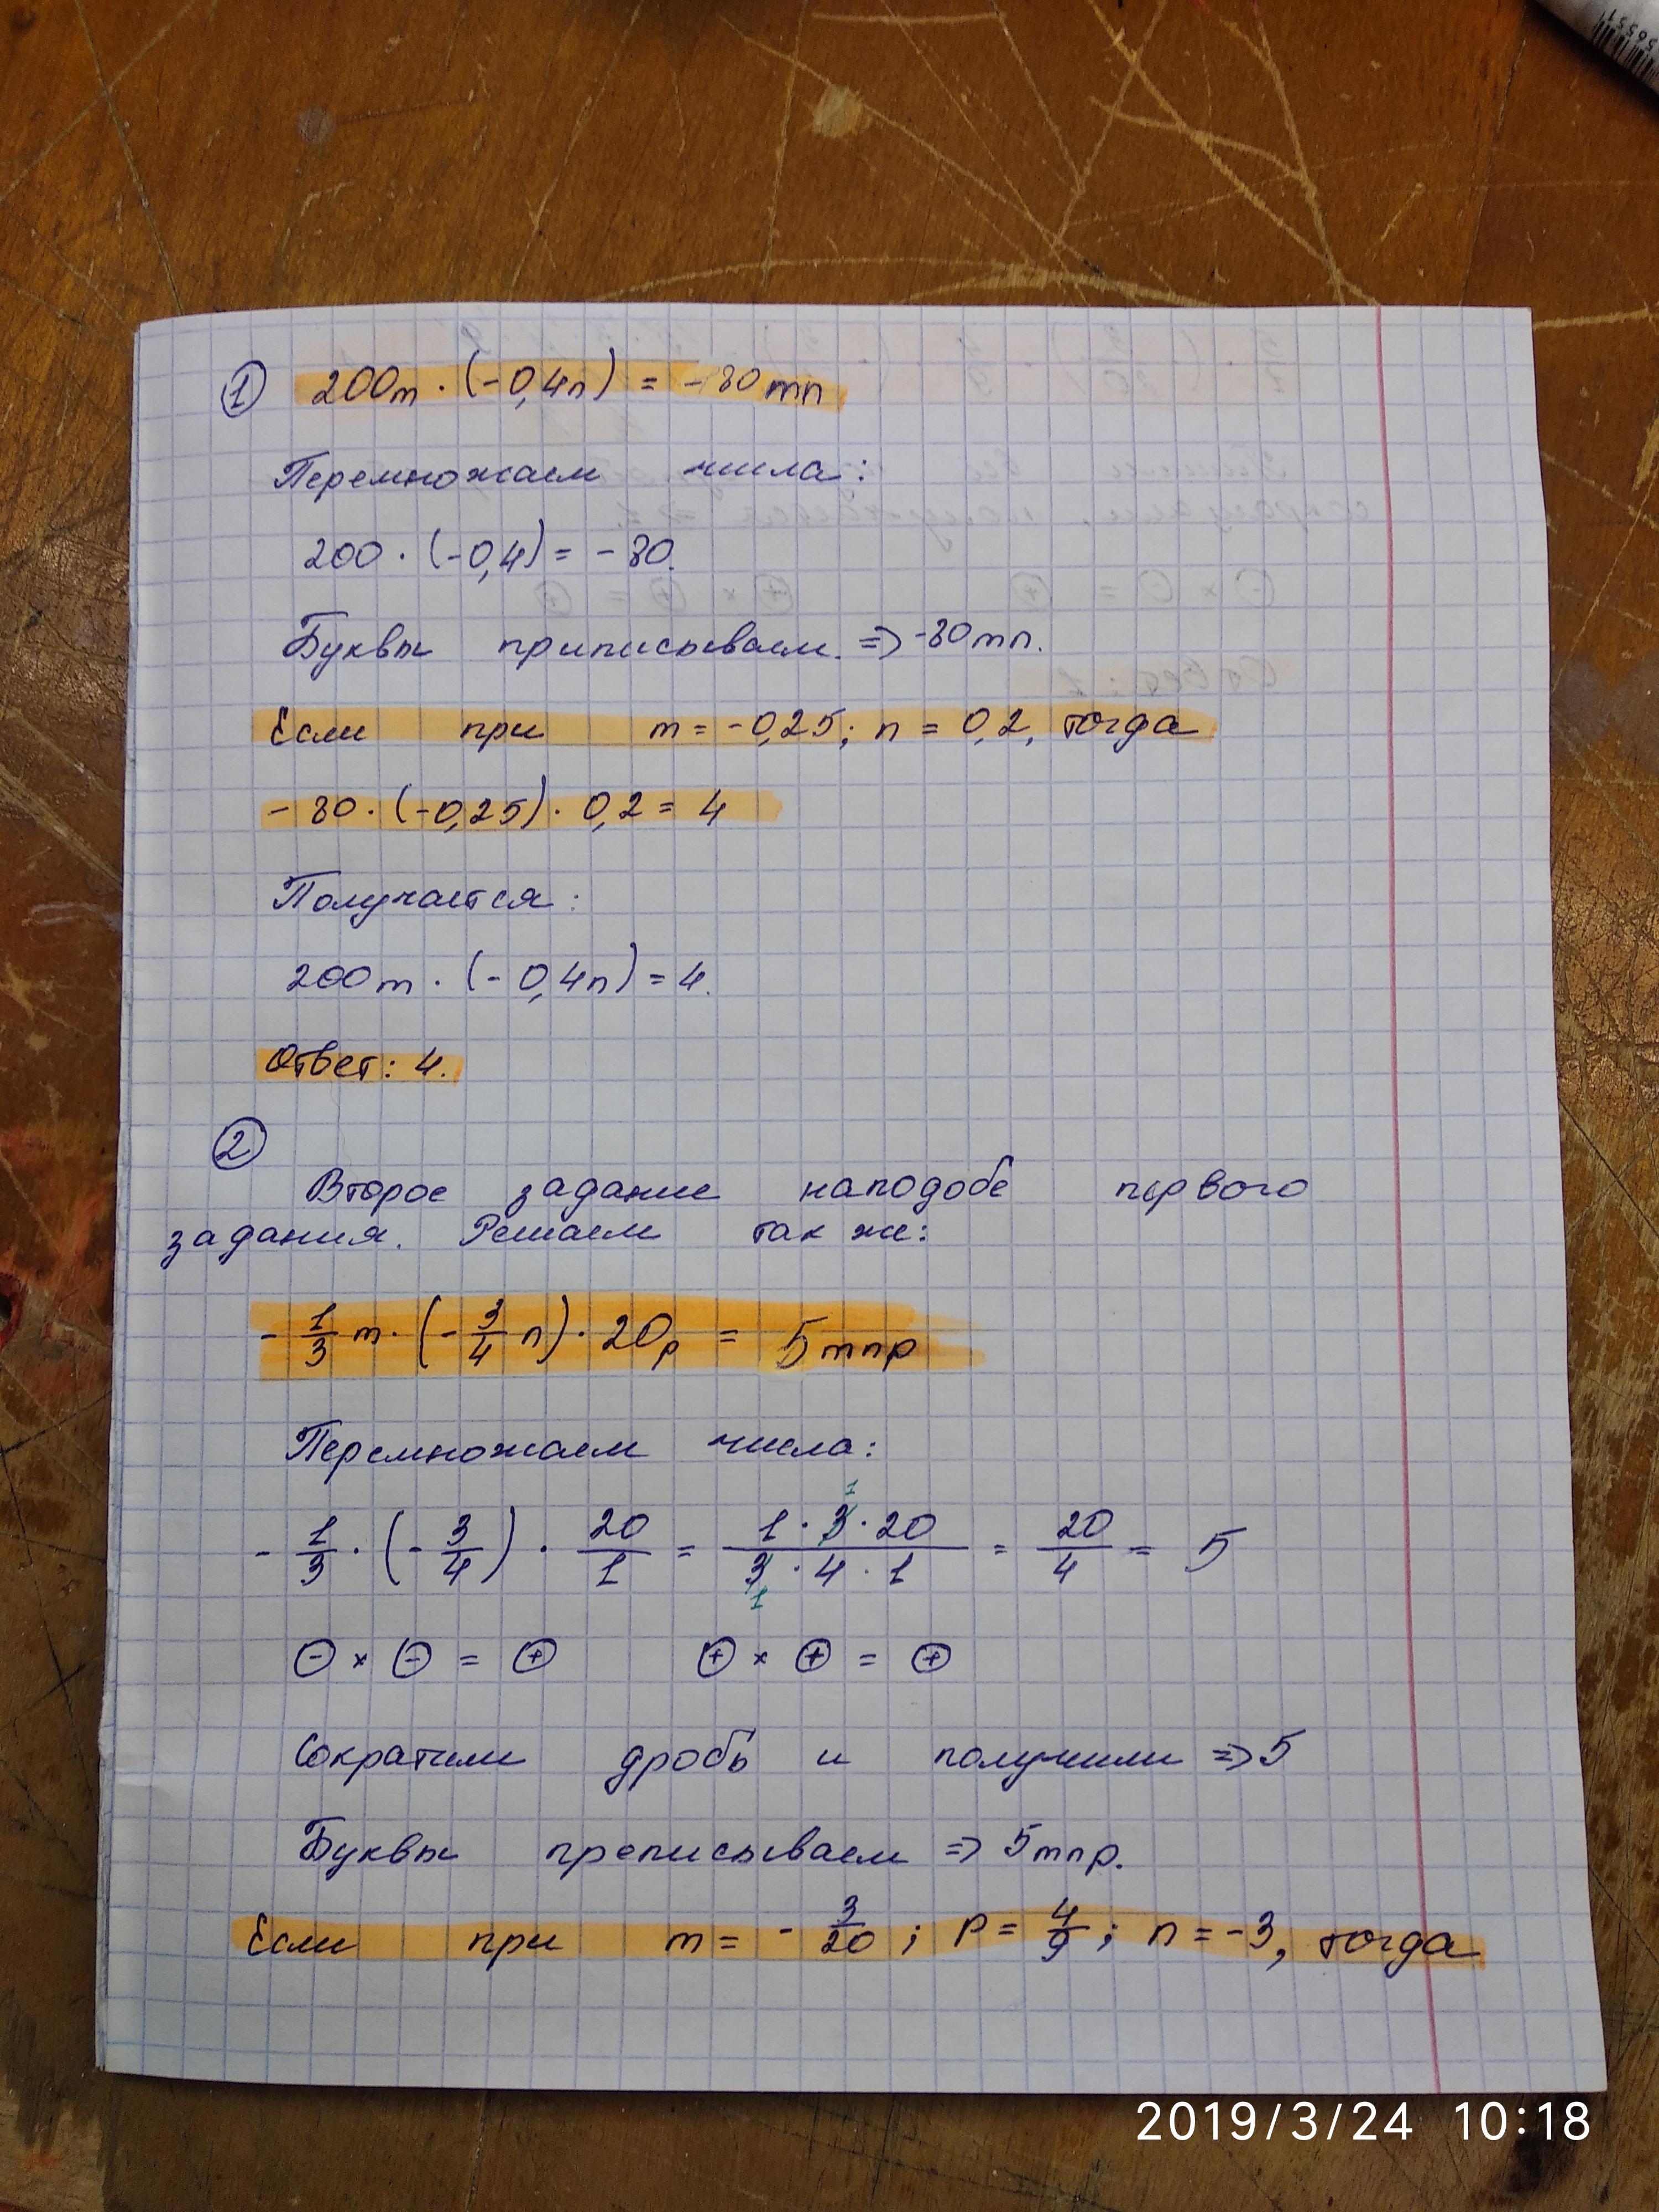 ① 200m · (-0,4n) = -80mn
Перемножаем числа:
200 · (-0,4) = -80.
Буквы приписываем. => -80mn.
Если при m = -0,25; n = 0,2, тогда
-80 · (-0,25) · 0,2 = 4
Получается:
200m · (-0,4n) = 4.
Ответ: 4.
②
Второе задание наподобе первого
задания. Решаем так же:
-1/3 m · (-3/4 n) · 20p = 5mnp
Перемножаем числа:
-1/3 · (-3/4) · 20/1 = 1 · 3 · 20 / 3 · 4 · 1 = 20/4 = 5
⊖ × ⊖ = ⊕ ⊕ × ⊕ = ⊕
Сократили дробь и получили => 5
Буквы преписываем => 5mnp.
Если при m = -3/20; p = 4/9; n = -3, тогда
2019/3/24 10:18